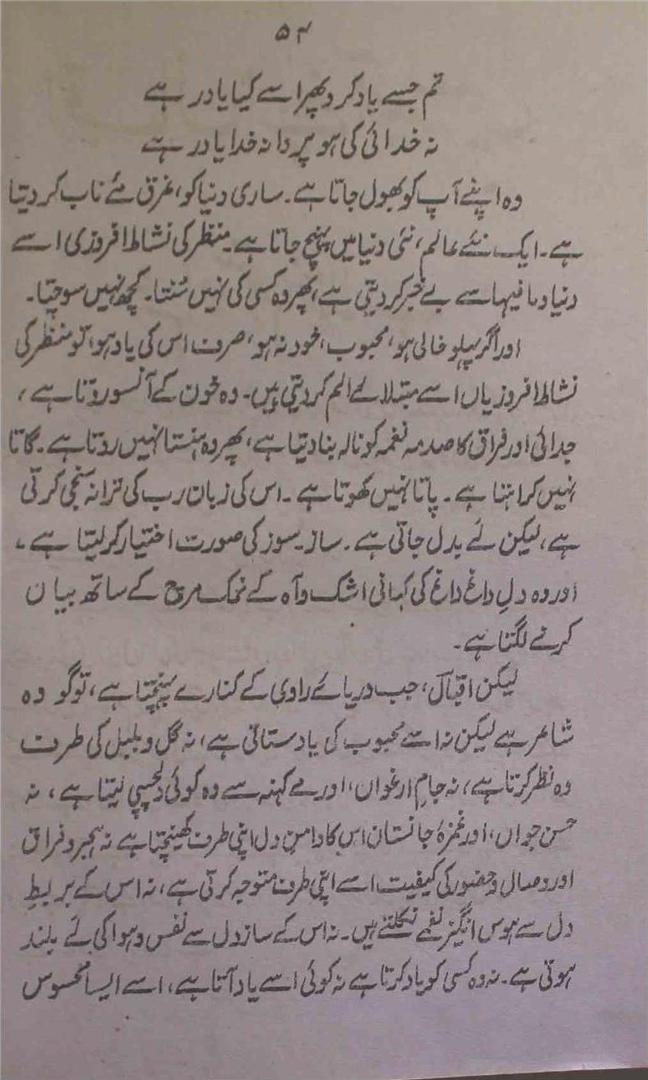 ۵۴
تم جسے یاد کرو پھر اسے کیا یاد رہے
نہ خدائی کی ہو پروا نہ خدا یاد رہے
وہ اپنے آپ کو بھول جاتا ہے۔ ساری دنیا کو، غرق مئے ناب کر دیتا
ہے۔ ایک نئے عالم، نئی دنیا میں پہنچ جاتا ہے۔ منظر کی نشاط افروزی اسے
دنیا و ما فیہا سے بے خبر کر دیتی ہے، پھر وہ کسی کی نہیں سُنتا۔ کچھ نہیں سوچتا۔
اور اگر پہلو خالی ہو، محبوب، خود نہ ہو، صرف اس کی یاد ہو، تو منظر کی
نشاط افروزیاں اسے مبتلائے الم کر دیتی ہیں۔ وہ خون کے آنسو روتا ہے،
جدائی اور فراق کا صدمہ نغمہ کو نالہ بنا دیتا ہے، پھر وہ ہنستا نہیں روتا ہے۔ گاتا
نہیں کراہتا ہے۔ پاتا نہیں کھوتا ہے۔ اس کی زبان رب کی ترانہ سنجی کرتی
ہے، لیکن لے بدل جاتی ہے۔ ساز۔ سوز کی صورت اختیار کر لیتا ہے۔
اور وہ دلِ داغ داغ کی کہانی اشک و آہ کے نمک مرچ کے ساتھ بیان
کرنے لگتا ہے۔
لیکن اقبالؔ، جب دریائے راوی کے کنارے پہنچتا ہے، تو گو وہ
شاعر ہے لیکن نہ اسے محبوب کی یاد ستاتی ہے، نہ گل و بلبل کی طرف
وہ نظر کرتا ہے، نہ جامِ ارغواں، اور مے کہنہ سے وہ کوئی دلچسپی لیتا ہے، نہ
حسن جواں، اور غمزۂ جانستاں اس کا دامنِ دل اپنی طرف کھینچتا ہے نہ ہجر و فراق
اور وصال و حضور کی کیفیت اسے اپنی طرف متوجہ کرتی ہے، نہ اس کے بربطِ
دل سے ہوس انگیز نغمے نکلتے ہیں۔ نہ اس کے سازِ دل سے نفس و ہوا کی لے بلند
ہوتی ہے۔ نہ وہ کسی کو یاد کرتا ہے نہ کوئی اسے یاد آتا ہے، اسے ایسا محسوس